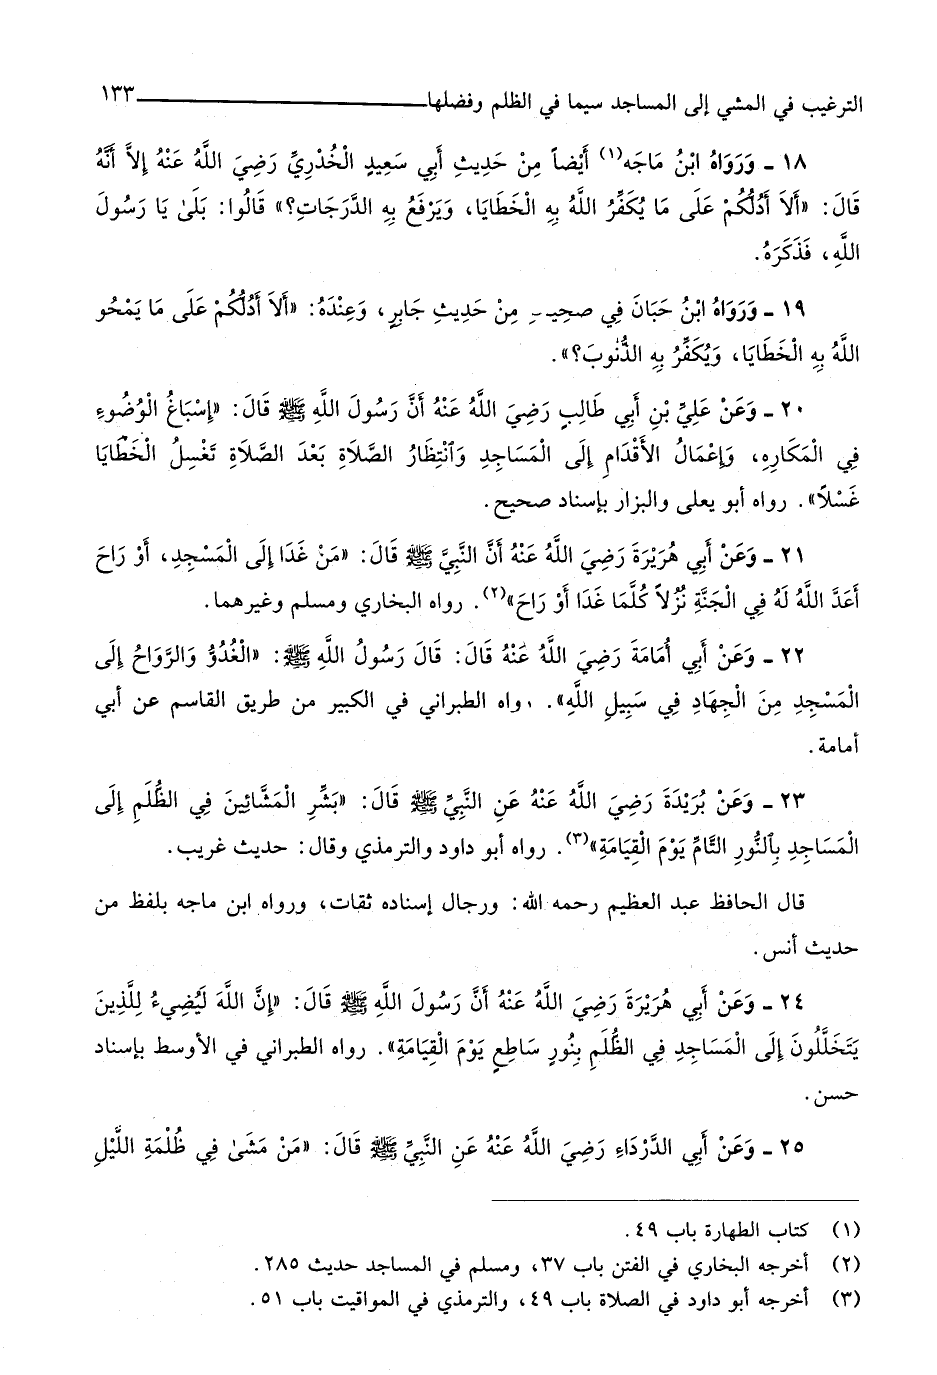 الترغيب في المشي إلى المساجد سيما في الظلم وفضلها ١٣٣
١٨ ـ وَرَوَاهُ ابْنُ مَاجَه(١) أَيْضاً مِنْ حَدِيثِ أَبِي سَعِيدٍ الْخُدْرِيِّ رَضِيَ اللَّهُ عَنْهُ إِلاَّ أَنَّهُ
قَالَ: «أَلاَ أَدُلُّكُمْ عَلَى مَا يُكَفِّرُ اللَّهُ بِهِ الْخَطَايَا، وَيَرْفَعُ بِهِ الدَّرَجَاتِ؟» قَالُوا: بَلَىٰ يَا رَسُولَ
اللَّهِ، فَذَكَرَهُ.
١٩ ـ وَرَوَاهُ ابْنُ حَبَانَ فِي صحيـ مِنْ حَدِيثِ جَابِرٍ، وَعِنْدَهُ: «أَلاَ أَدُلُّكُمْ عَلَى مَا يَمْحُو
اللَّهُ بِهِ الْخَطَايَا، وَيُكَفِّرُ بِهِ الذُّنُوبَ؟».
٢٠ ـ وَعَنْ عَلِيِّ بْنِ أَبِي طَالِبٍ رَضِيَ اللَّهُ عَنْهُ أَنَّ رَسُولَ اللَّهِ ﷺ قَالَ: «إِسْبَاغُ الْوُضُوءِ
فِي الْمَكَارِهِ، وَإِعْمَالُ الأَقْدَامِ إِلَى الْمَسَاجِدِ وَٱنْتِظَارُ الصَّلاَةِ بَعْدَ الصَّلاَةِ تَغْسِلُ الْخَطَايَا
غَسْلاً». رواه أبو يعلى والبزار بإسناد صحيح.
٢١ ـ وَعَنْ أَبِي هُرَيْرَةَ رَضِيَ اللَّهُ عَنْهُ أَنَّ النَّبِيَّ ﷺ قَالَ: «مَنْ غَدَا إِلَى الْمَسْجِدِ، أَوْ رَاحَ
أَعَدَّ اللَّهُ لَهُ فِي الْجَنَّةِ نُزُلاً كُلَّمَا غَدَا أَوْ رَاحَ»(٢). رواه البخاري ومسلم وغيرهما.
٢٢ ـ وَعَنْ أَبِي أُمَامَةَ رَضِيَ اللَّهُ عَنْهُ قَالَ: قَالَ رَسُولُ اللَّهِ ﷺ: «الْغُدُوُّ وَالرَّوَاحُ إِلَى
الْمَسْجِدِ مِنَ الْجِهَادِ فِي سَبِيلِ اللَّهِ». رواه الطبراني في الكبير من طريق القاسم عن أبي
أمامة.
٢٣ ـ وَعَنْ بُرَيْدَةَ رَضِيَ اللَّهُ عَنْهُ عَنِ النَّبِيِّ ﷺ قَالَ: «بَشِّرِ الْمَشَّائِينَ فِي الظُّلَمِ إِلَى
الْمَسَاجِدِ بِٱلنُّورِ التَّامِّ يَوْمَ الْقِيَامَةِ»(٣). رواه أبو داود والترمذي وقال: حديث غريب.
قال الحافظ عبد العظيم رحمه الله: ورجال إسناده ثقات، ورواه ابن ماجه بلفظ من
حديث أنس.
٢٤ ـ وَعَنْ أَبِي هُرَيْرَةَ رَضِيَ اللَّهُ عَنْهُ أَنَّ رَسُولَ اللَّهِ ﷺ قَالَ: «إِنَّ اللَّهَ لَيُضِيءُ لِلَّذِينَ
يَتَخَلَّلُونَ إِلَى الْمَسَاجِدِ فِي الظُّلَمِ بِنُورٍ سَاطِعٍ يَوْمَ الْقِيَامَةِ». رواه الطبراني في الأوسط بإسناد
حسن.
٢٥ ـ وَعَنْ أَبِي الدَّرْدَاءِ رَضِيَ اللَّهُ عَنْهُ عَنِ النَّبِيِّ ﷺ قَالَ: «مَنْ مَشَىٰ فِي ظُلْمَةِ اللَّيْلِ
(١) كتاب الطهارة باب ٤٩.
(٢) أخرجه البخاري في الفتن باب ٣٧، ومسلم في المساجد حديث ٢٨٥.
(٣) أخرجه أبو داود في الصلاة باب ٤٩، والترمذي في المواقيت باب ٥١.